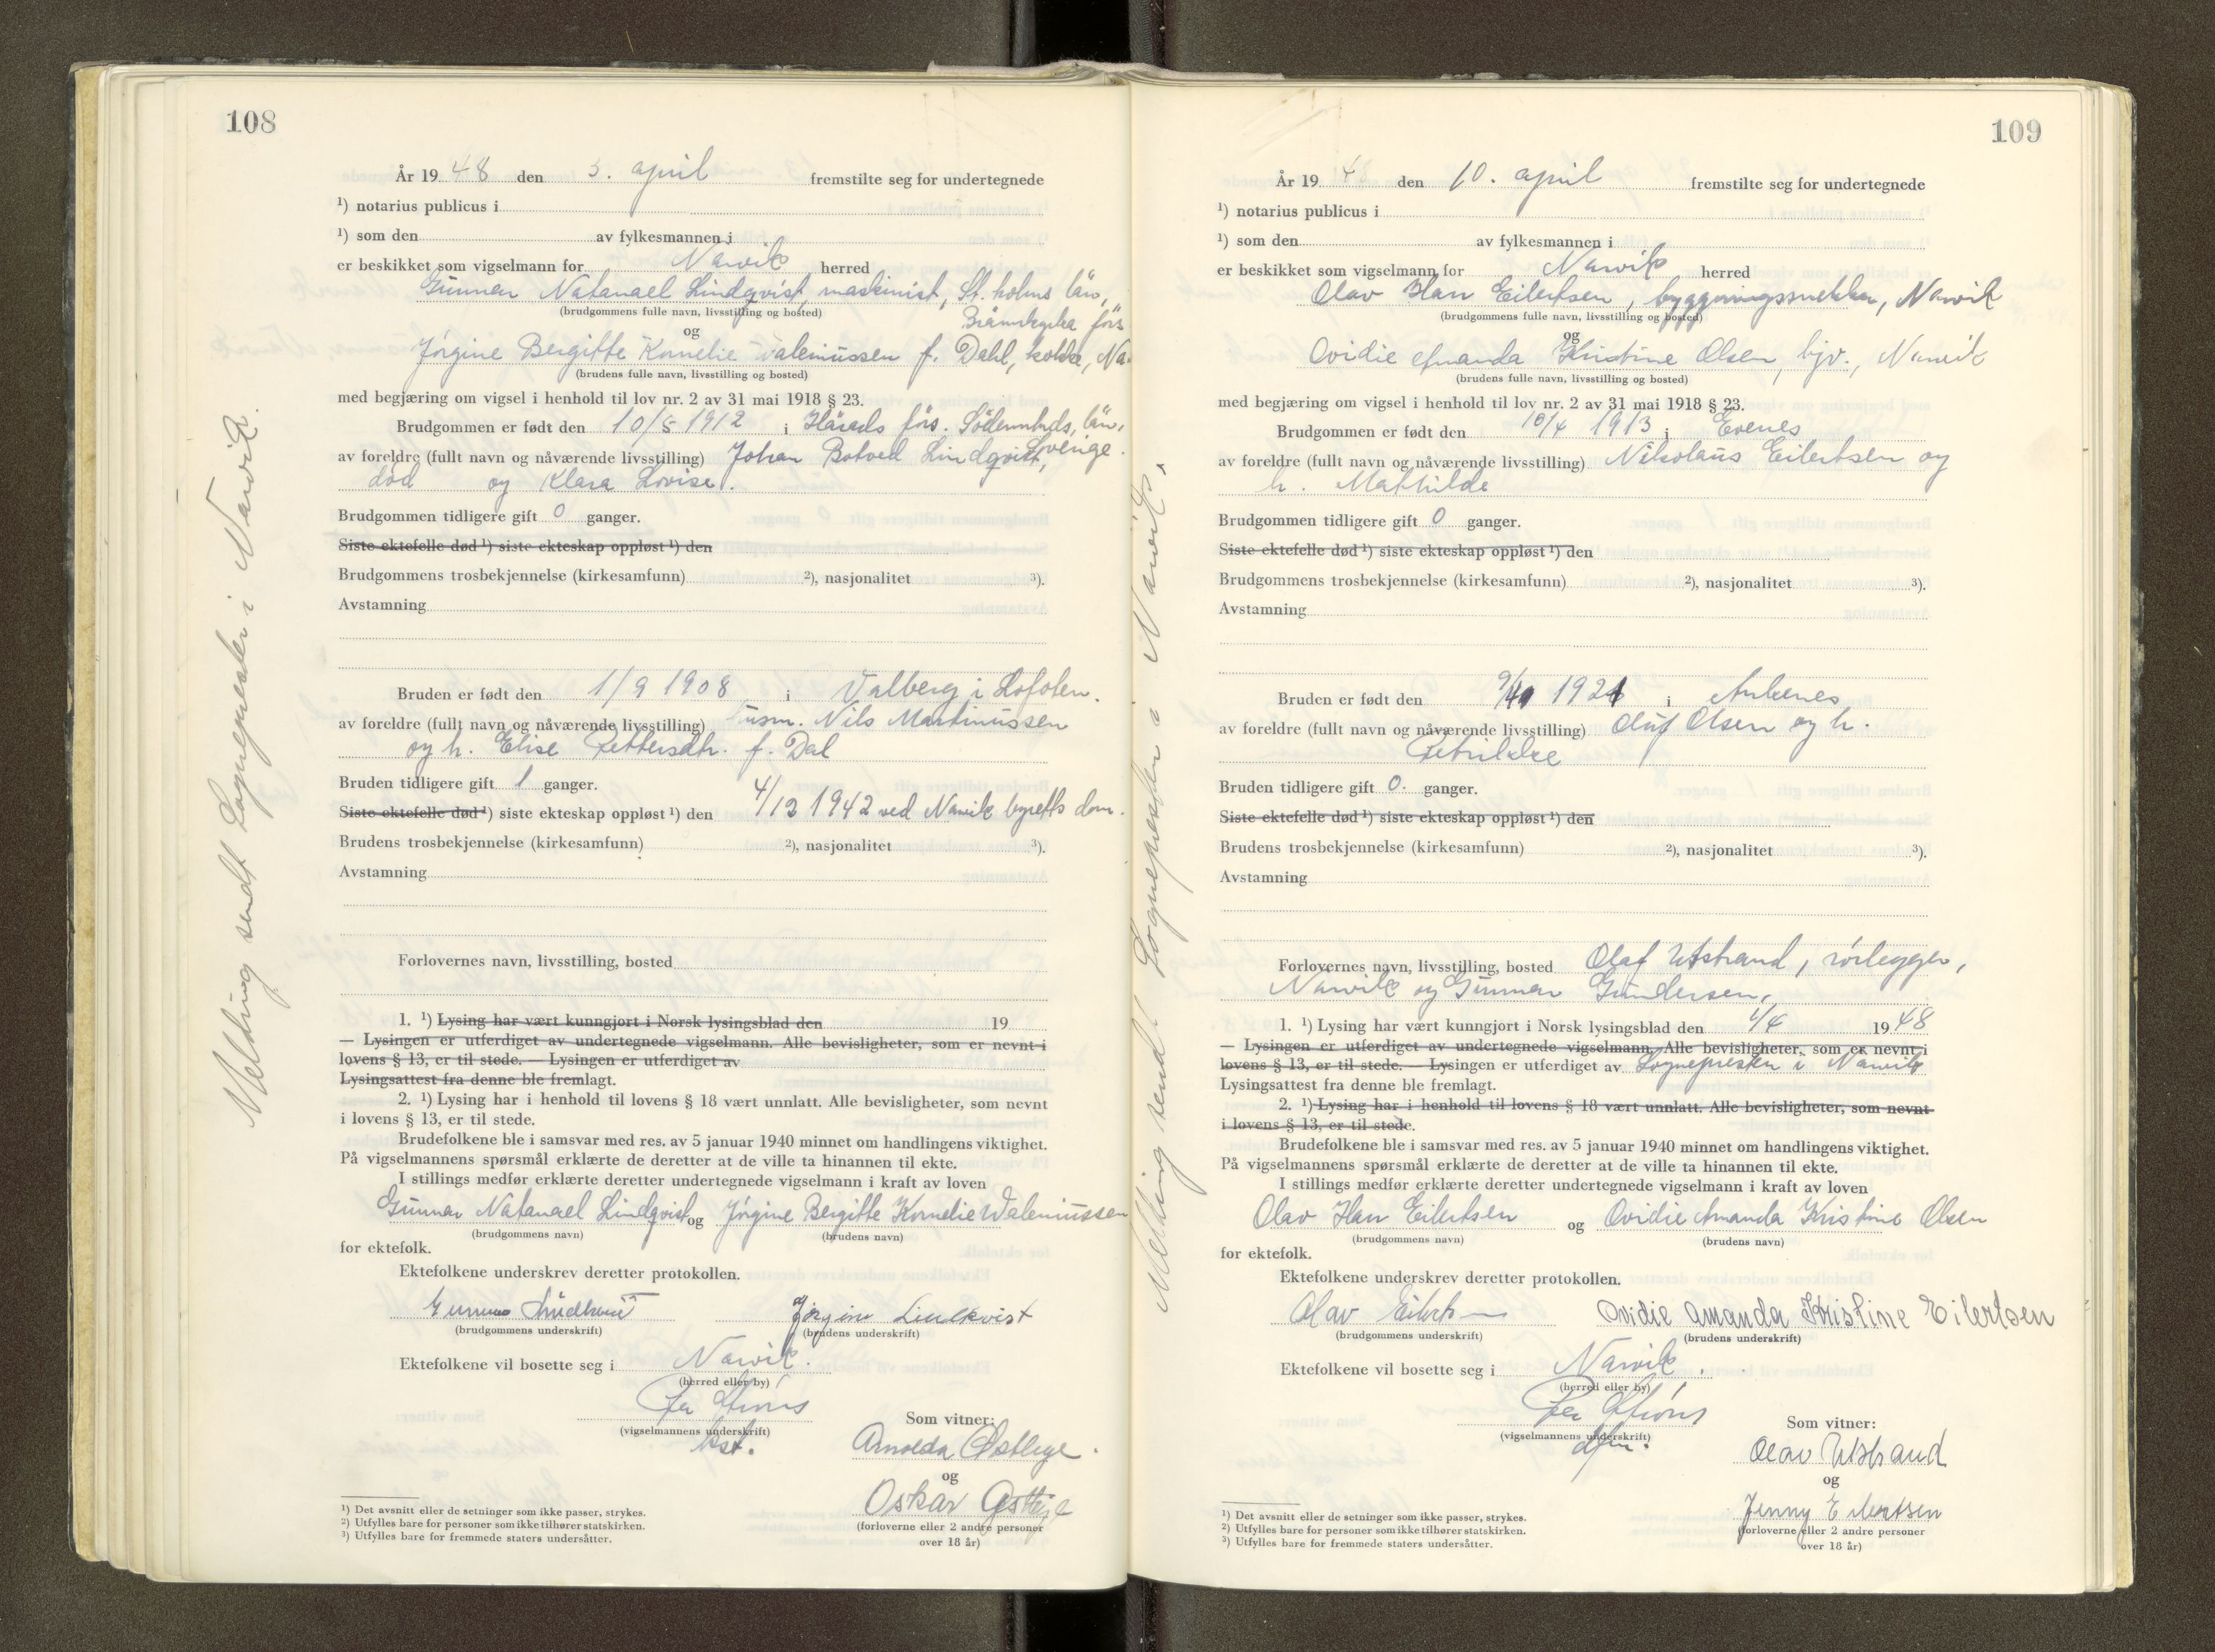 108
År 19 48 den 3. april fremstilte seg for undertegnede
¹) notarius publicus i
¹) som den av fylkesmannen i
er beskikket som vigselmann for Narvik herred
Gunnar Natanael Lindqvist, maskinist, St. holms län,
(brudgommens fulle navn, livsstilling og bosted)
Brännkyrka förs
og
Jørgine Bergitte Kornelie Valeniussen f. Dahl, kokke, Na
(brudens fulle navn, livsstilling og bosted)
med begjæring om vigsel i henhold til lov nr. 2 av 31 mai 1918 § 23.
Brudgommen er født den 10/5 1912 i Härads förs. län,
Sverige.
av foreldre (fullt navn og nåværende livsstilling) Johan Botved Lindqvist,
død og Klara Lovise.
Brudgommen tidligere gift 0 ganger.
Siste ektefelle død ¹) siste ekteskap oppløst ¹) den
Brudgommens trosbekjennelse (kirkesamfunn) ²), nasjonalitet ³).
Avstamning
Bruden er født den 1/9 1908 i Valberg i Lofoten.
av foreldre (fullt navn og nåværende livsstilling) Nils Martinussen
og h. Elise Pettersdtr. f. Dal
Bruden tidligere gift 1 ganger.
Siste ektefelle død ¹) siste ekteskap oppløst ¹) den 4/12 1942 ved Narvik byretts dom.
Brudens trosbekjennelse (kirkesamfunn) ²), nasjonalitet ³).
Avstamning
Forlovernes navn, livsstilling, bosted
1. ¹) Lysing har vært kunngjort i Norsk lysingsblad den 19
— Lysingen er utferdiget av undertegnede vigselmann. Alle bevisligheter, som er nevnt i
lovens § 13, er til stede. — Lysingen er utferdiget av
Lysingsattest fra denne ble fremlagt.
2. ¹) Lysing har i henhold til lovens § 18 vært unnlatt. Alle bevisligheter, som nevnt
i lovens § 13, er til stede.
Brudefolkene ble i samsvar med res. av 5 januar 1940 minnet om handlingens viktighet.
På vigselmannens spørsmål erklærte de deretter at de ville ta hinannen til ekte.
I stillings medfør erklærte deretter undertegnede vigselmann i kraft av loven
Gunnar Natanael Lindqvist og Jørgine Bergitte Kornelie Valeniussen
(brudgommens navn) (brudens navn)
for ektefolk.
Ektefolkene underskrev deretter protokollen.
Gunnar Lindkvist Jørgine Lindkvist
(brudgommens underskrift) (brudens underskrift)
Ektefolkene vil bosette seg i Narvik.
(herred eller by)
Per
(vigselmannens underskrift)
kst.
Som vitner:
Arnolda
og
Oskar
(forloverne eller 2 andre personer
over 18 år)
¹) Det avsnitt eller de setninger som ikke passer, strykes.
²) Utfylles bare for personer som ikke tilhører statskirken.
³) Utfylles bare for fremmede staters undersåtter.
Melding sendt Sognepresten i Narvik.
109
År 19 48 den 10. april fremstilte seg for undertegnede
¹) notarius publicus i
¹) som den av fylkesmannen i
er beskikket som vigselmann for Narvik herred
Olav Ilan Eilertsen, bygningssnekker, Narvik
(brudgommens fulle navn, livsstilling og bosted)
og
Ovidie Amanda Kristine Olsen, hjv., Narvik
(brudens fulle navn, livsstilling og bosted)
med begjæring om vigsel i henhold til lov nr. 2 av 31 mai 1918 § 23.
Brudgommen er født den 10/4 1913 i Evenes
av foreldre (fullt navn og nåværende livsstilling) Nikolaus Eilertsen og
h. Mathilde
Brudgommen tidligere gift 0 ganger.
Siste ektefelle død ¹) siste ekteskap oppløst ¹) den
Brudgommens trosbekjennelse (kirkesamfunn) ²), nasjonalitet ³).
Avstamning
Bruden er født den 1921 i Ankenes
av foreldre (fullt navn og nåværende livsstilling) Oluf Olsen og h.
Petrikke
Bruden tidligere gift 0. ganger.
Siste ektefelle død ¹) siste ekteskap oppløst ¹) den
Brudens trosbekjennelse (kirkesamfunn) ²), nasjonalitet ³).
Avstamning
Forlovernes navn, livsstilling, bosted Olaf Utstrand, rørlegger,
Narvik og Gunnar Gundersen,
1. ¹) Lysing har vært kunngjort i Norsk lysingsblad den 1/4 19 48
— Lysingen er utferdiget av undertegnede vigselmann. Alle bevisligheter, som er nevnt i
lovens § 13, er til stede. — Lysingen er utferdiget av Sognepresten i Narvik
Lysingsattest fra denne ble fremlagt.
2. ¹) Lysing har i henhold til lovens § 18 vært unnlatt. Alle bevisligheter, som nevnt
i lovens § 13, er til stede.
Brudefolkene ble i samsvar med res. av 5 januar 1940 minnet om handlingens viktighet.
På vigselmannens spørsmål erklærte de deretter at de ville ta hinannen til ekte.
I stillings medfør erklærte deretter undertegnede vigselmann i kraft av loven
Olav Ilan Eilertsen og Ovidie Amanda Kristine Olsen
(brudgommens navn) (brudens navn)
for ektefolk.
Ektefolkene underskrev deretter protokollen.
Olav Eilertsen Ovidie Amanda Kristine Eilertsen
(brudgommens underskrift) (brudens underskrift)
Ektefolkene vil bosette seg i Narvik.
(herred eller by)
Per
(vigselmannens underskrift)
dfm.
Som vitner:
Olav Utstrand
og
Jenny Eilertsen
(forloverne eller 2 andre personer
over 18 år)
¹) Det avsnitt eller de setninger som ikke passer, strykes.
²) Utfylles bare for personer som ikke tilhører statskirken.
³) Utfylles bare for fremmede staters undersåtter.
Melding sendt Sognepresten i Narvik.